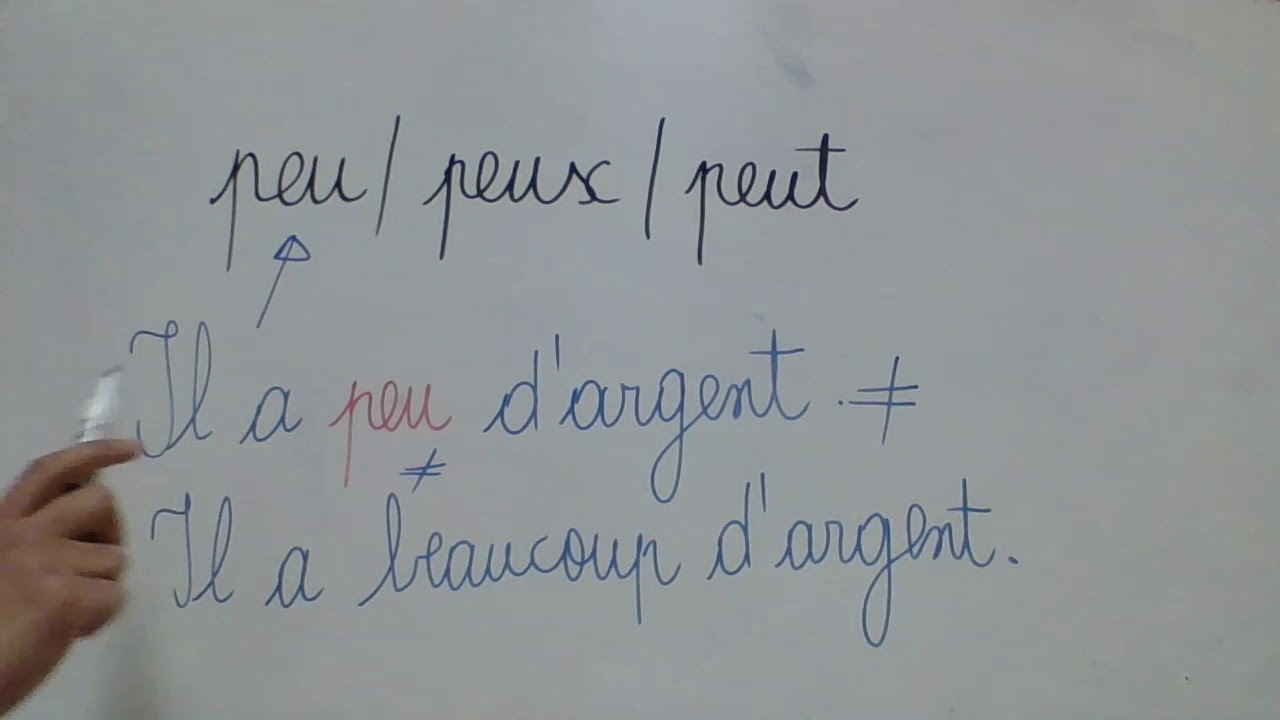 peu / peux / peut
Il a peu d'argent. ≠
≠
Il a beaucoup d'argent.